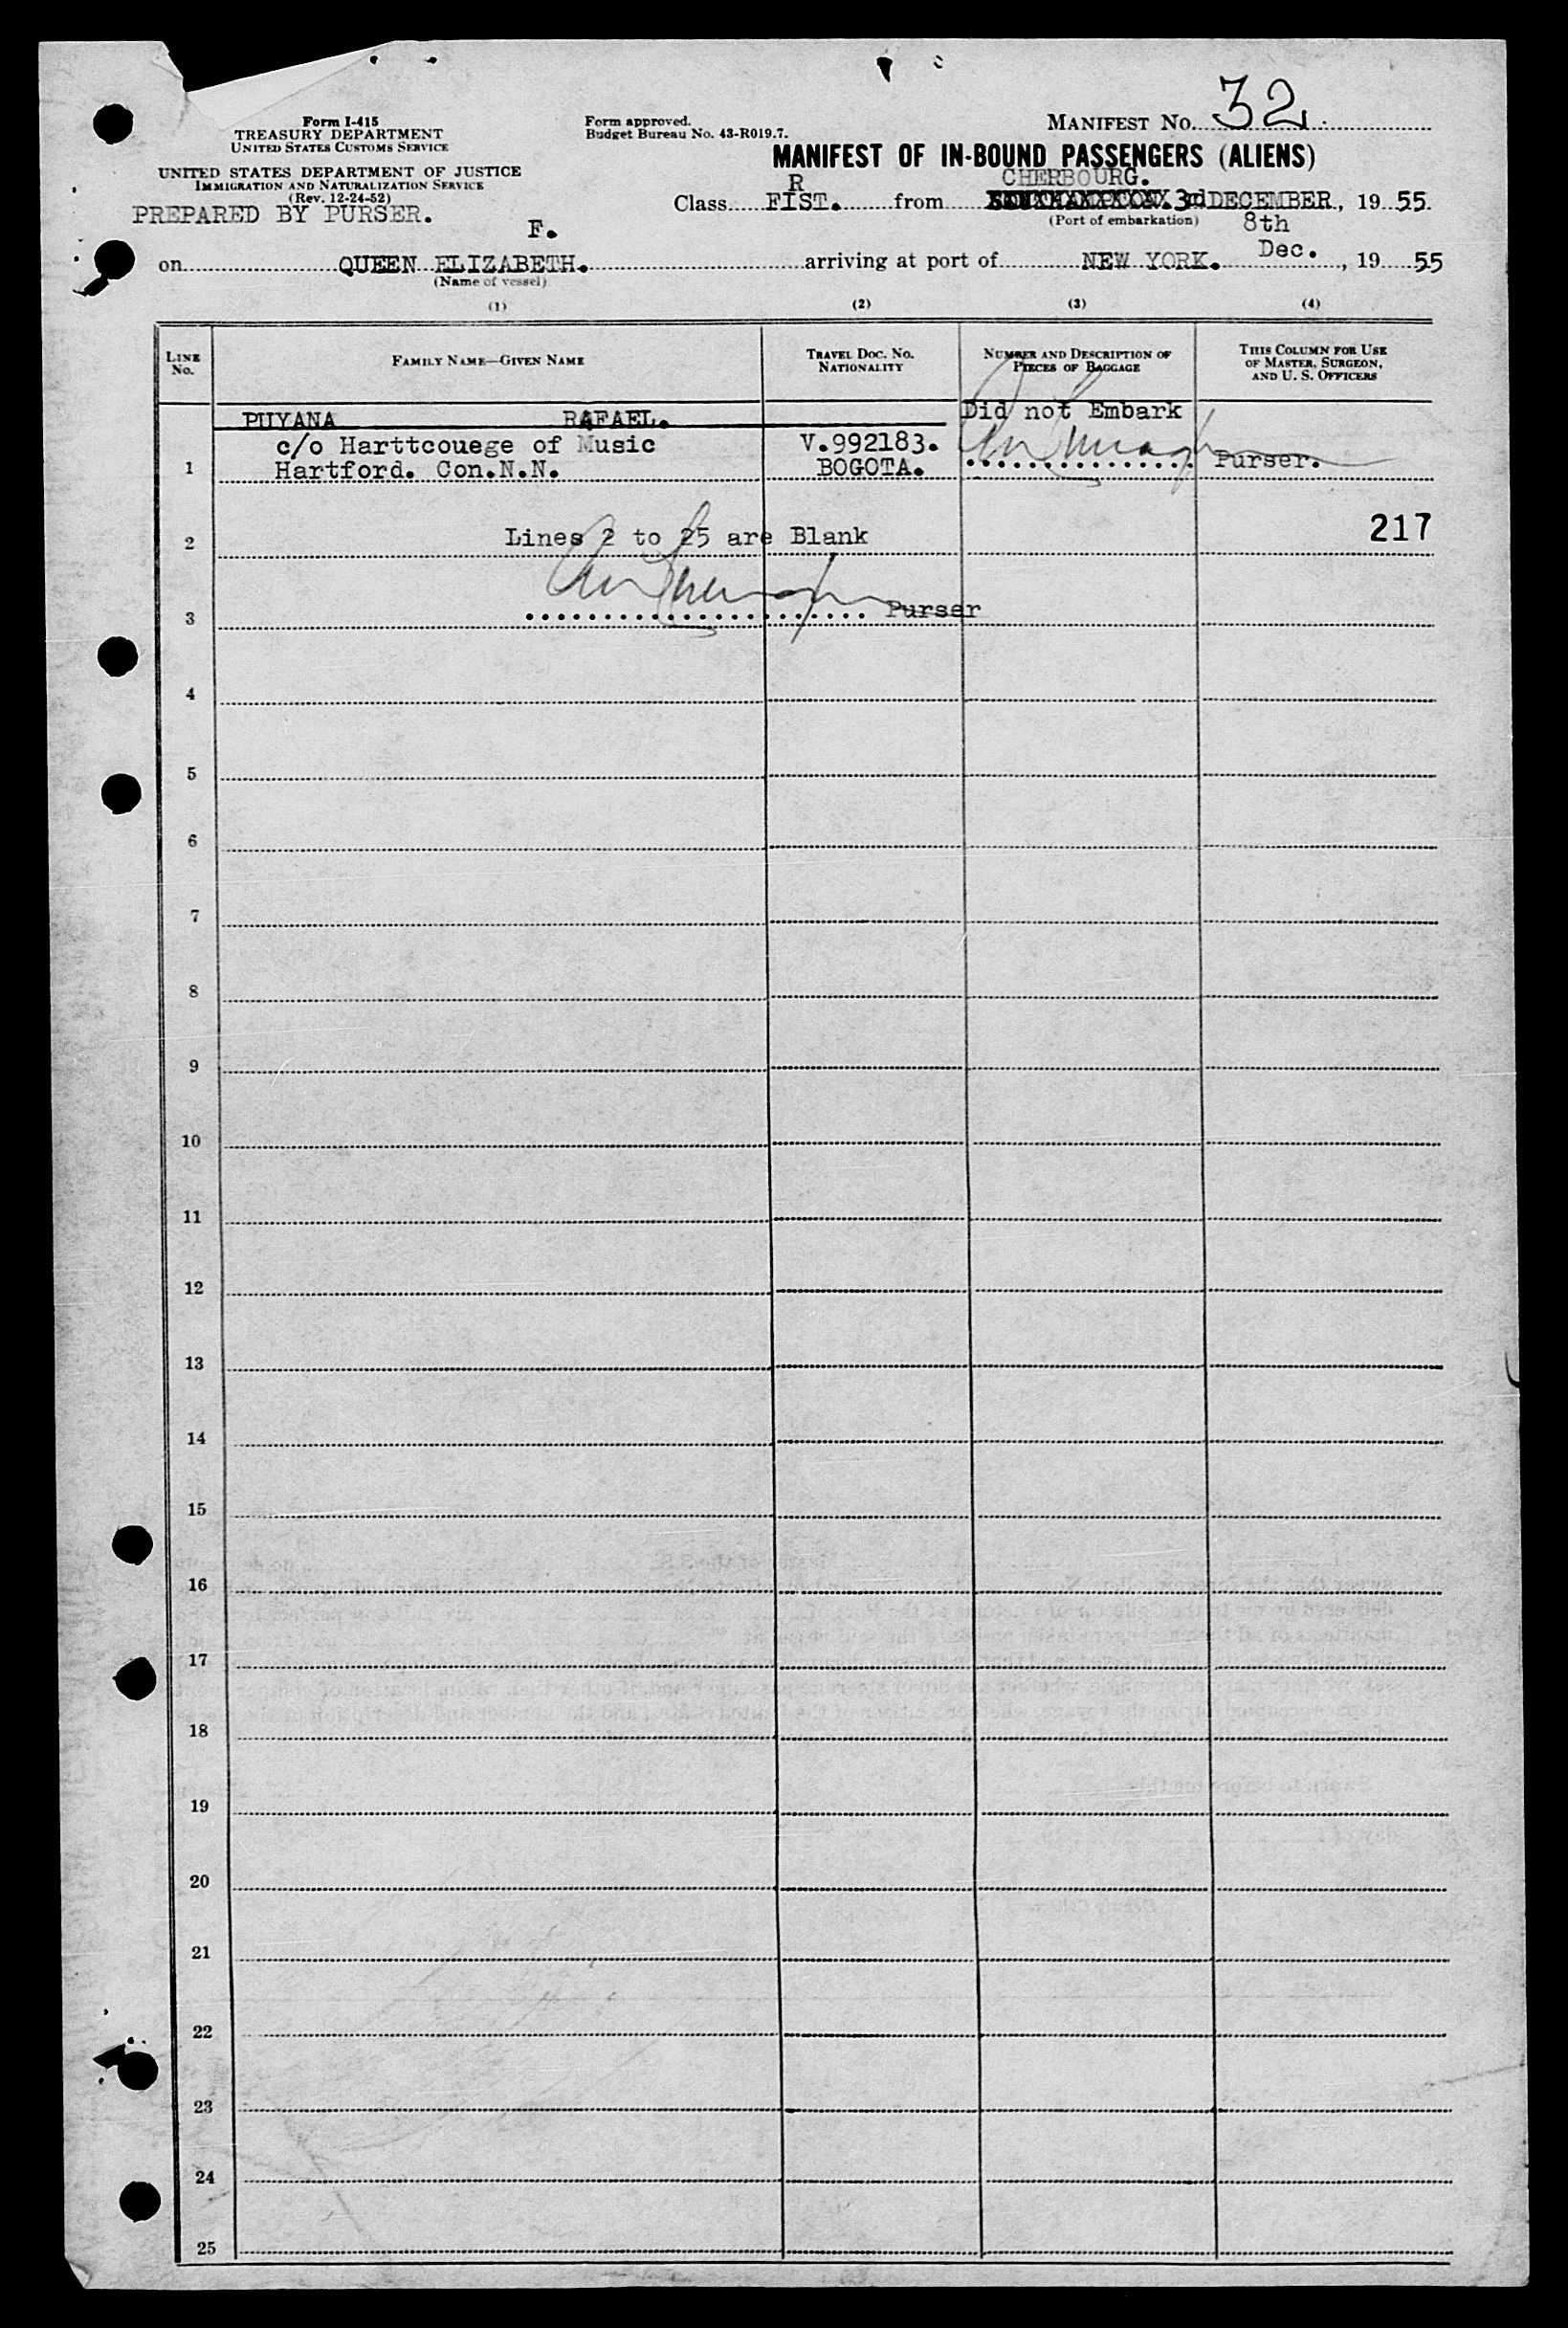 Form I-415
TREASURY DEPARTMENT
UNITED STATES CUSTOMS SERVICE
UNITED STATES DEPARTMENT OF JUSTICE
IMMIGRATION AND NATURALIZATION SERVICE
(Rev. 12-24-52)
PREPARED BY PURSER.
Form approved.
Budget Bureau No. 43-R019.7.
MANIFEST NO. 32
MANIFEST OF IN-BOUND PASSENGERS (ALIENS)
R CHERBOURG.
Class FIST. from 3rd DECEMBER, 19 55.
(Port of embarkation)
F. 8th
on QUEEN ELIZABETH. arriving at port of NEW YORK. Dec., 19 55
(Name of vessel)
(1) (2) (3) (4)
LINE NO.
FAMILY NAME—GIVEN NAME
TRAVEL DOC. NO. NATIONALITY
NUMBER AND DESCRIPTION OF PIECES OF BAGGAGE
THIS COLUMN FOR USE OF MASTER, SURGEON, AND U. S. OFFICERS
PUYANA RAFAEL. Did not Embark
c/o Harttcouege of Music V.992183.
1 Hartford. Con.N.N. BOGOTA. Purser.
217
2 Lines 2 to 25 are Blank
3 Purser
4
5
6
7
8
9
10
11
12
13
14
15
16
17
18
19
20
21
22
23
24
25